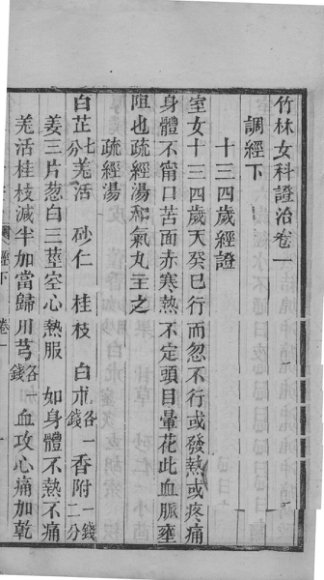 竹林女科證治卷一
調經下
十三四歲經證
室女十三四歲天癸已行而忽不行或發熱或疼痛
身體不甯口苦面赤寒熱不定頭目暈花此血脈壅
阻也疏經湯和氣丸主之
疏經湯
白芷七分羌活 砂仁 桂枝 白朮各一錢香附一錢二分
姜三片葱白三莖空心熱服 如身體不熱不痛
羌活桂枝減半加當歸川芎各一錢 血攻心痛加乾
經下 卷一